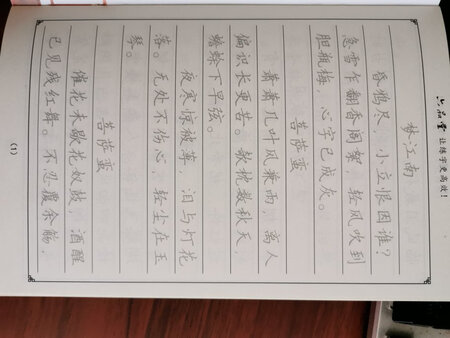 六品堂 让练字更高效!
梦江南
昏鸦尽，小立恨因谁？
急雪乍翻香阁絮，轻风吹到
胆瓶梅，心字已成灰。
菩萨蛮
萧萧几叶风兼雨，离人
偏识长更苦。欹枕数秋天，
蟾蜍下早弦。
夜寒惊被薄，泪与灯花
落。无处不伤心，轻尘在玉
琴。
菩萨蛮
催花未歇花奴鼓，酒醒
已见残红舞。不忍覆余觞，
(1)